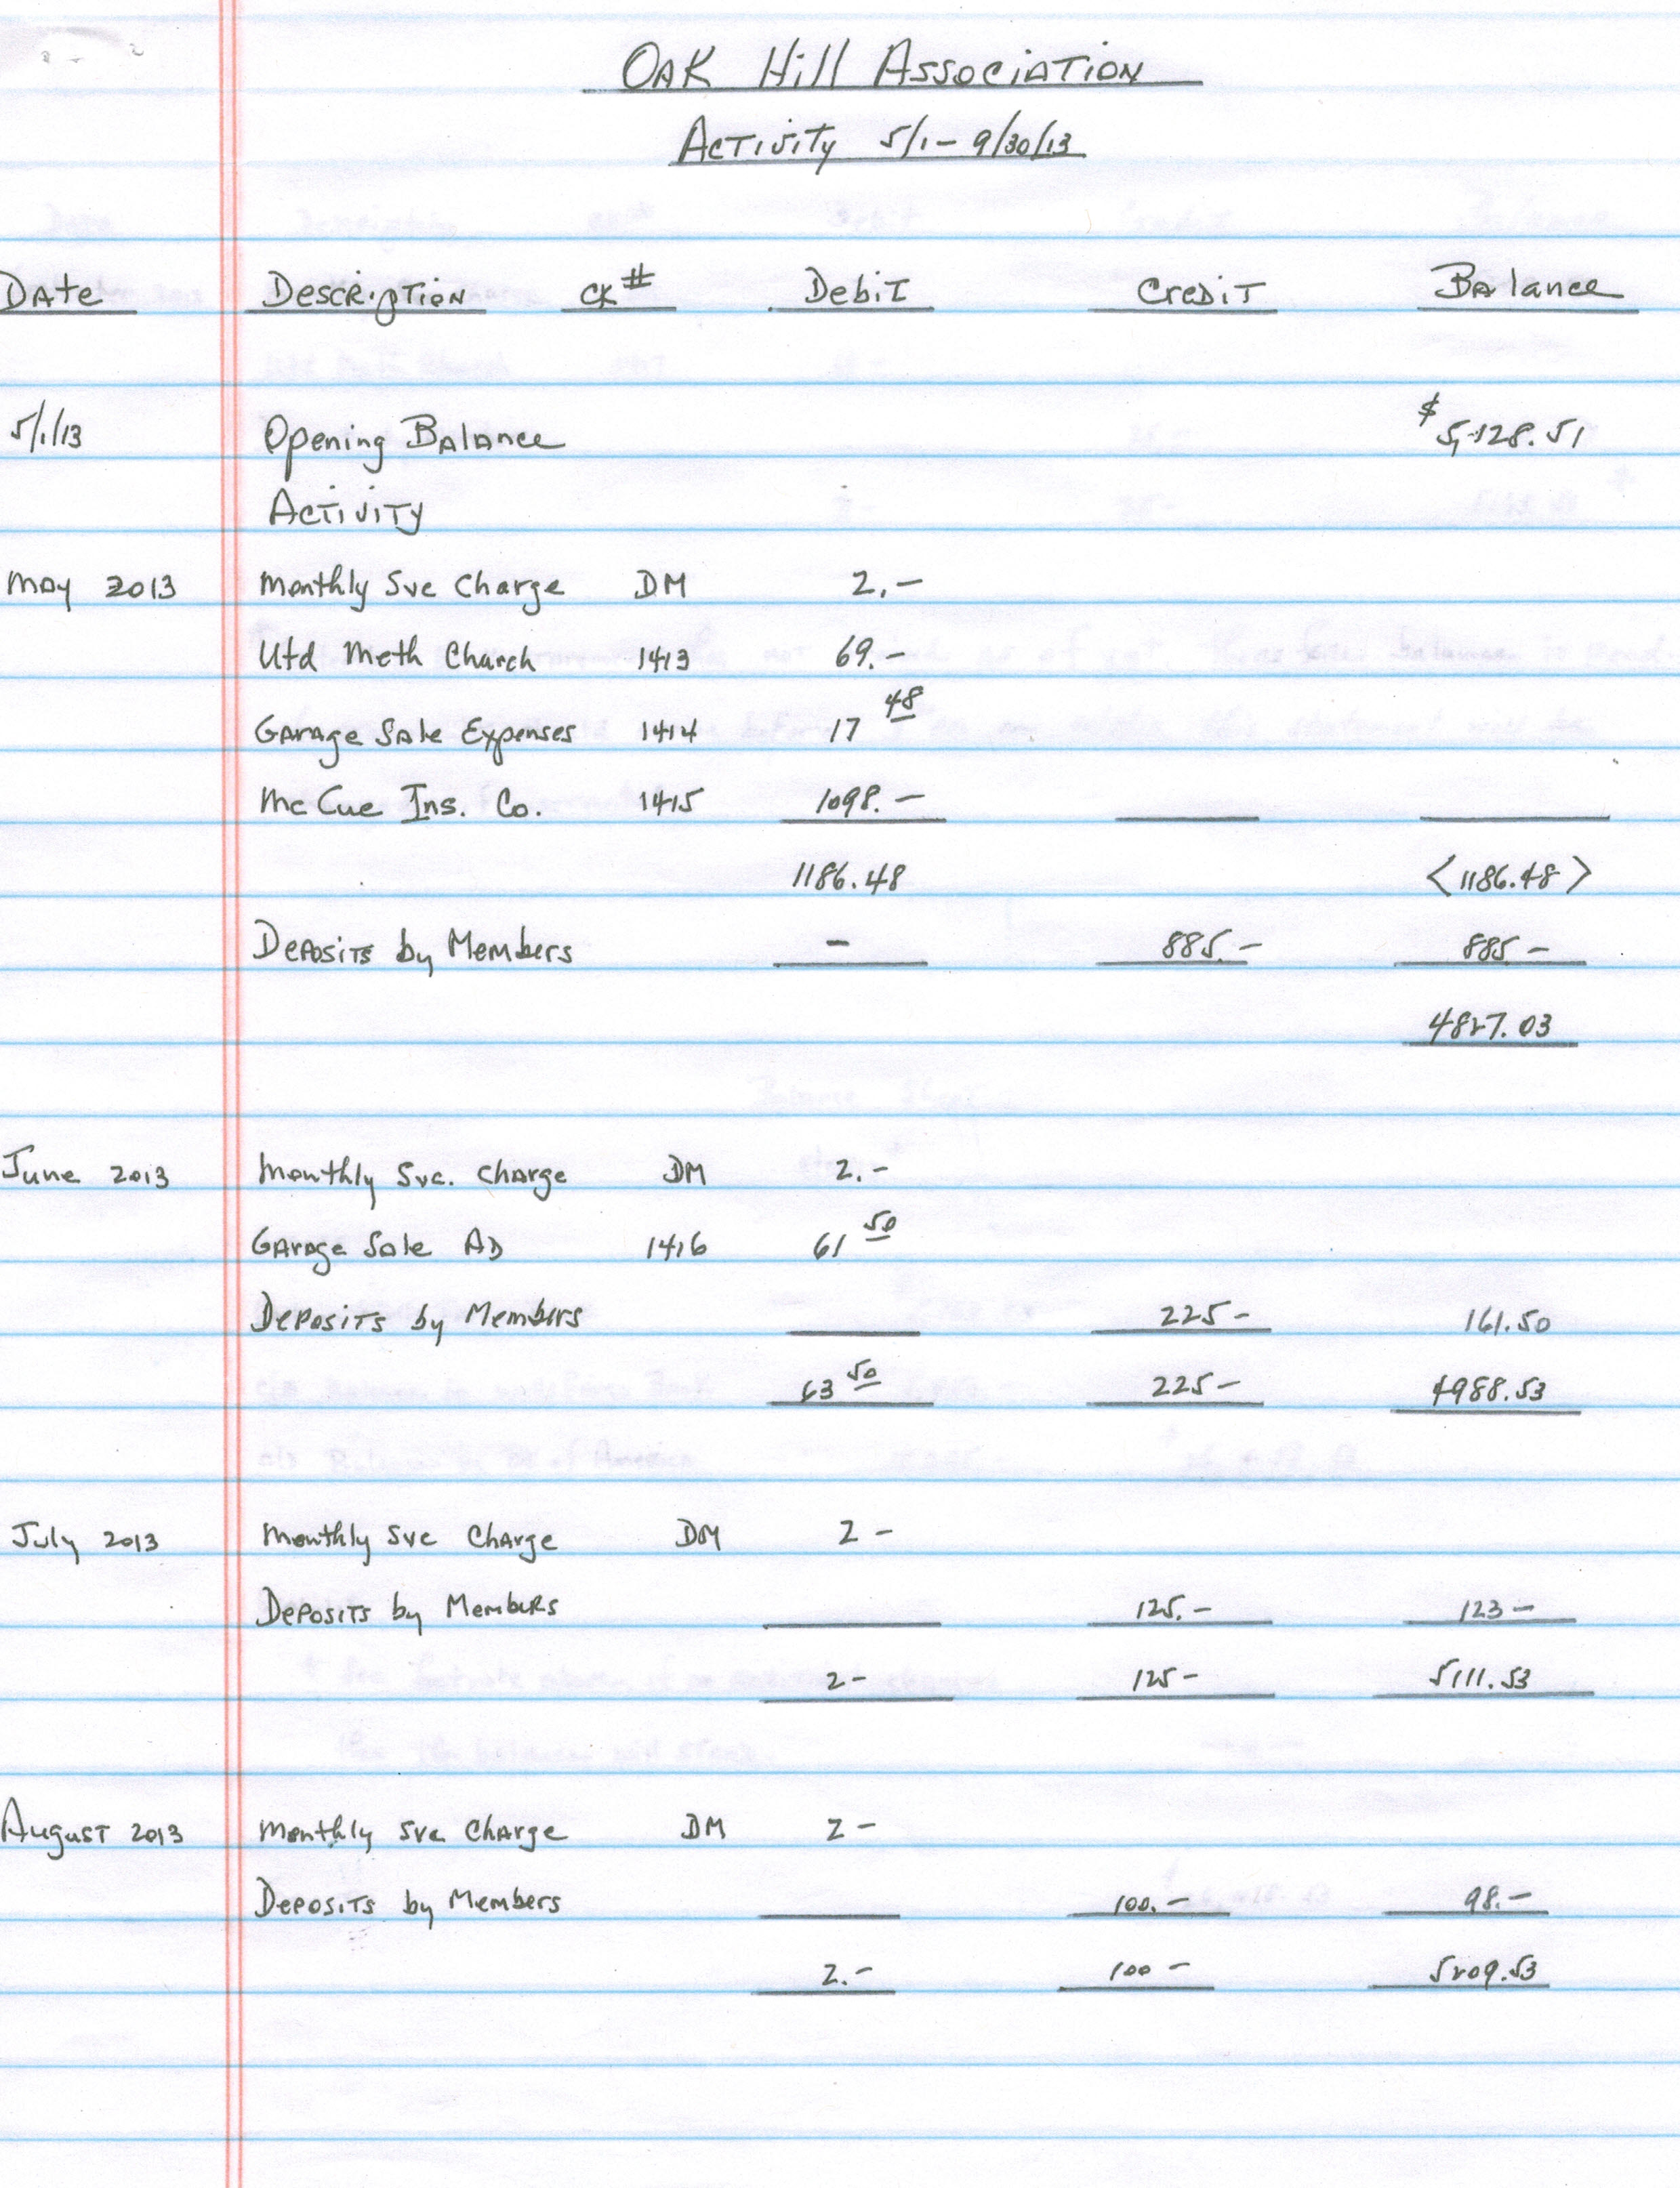 Oak Hill Association
Activity 5/1 - 9/30/13
Date Description CK# Debit Credit Balance
5/1/13 Opening Balance $5,128.51
Activity
May 2013 Monthly Svc Charge DM 2.-
Utd Meth Church 1413 69.-
Garage Sale Expenses 1414 17 48
McCue Ins. Co. 1415 1098.-
1186.48 <1186.48>
Deposits by Members - 885.- 885-
4827.03
June 2013 Monthly Svc. Charge DM 2.-
Garage Sale AD 1416 61 50
Deposits by Members 225- 161.50
63 50 225- 4988.53
July 2013 Monthly Svc Charge DM 2-
Deposits by Members 125.- 123-
2- 125- 5111.53
August 2013 Monthly Svc Charge DM 2-
Deposits by Members 100.- 98.-
2.- 100- 5209.53